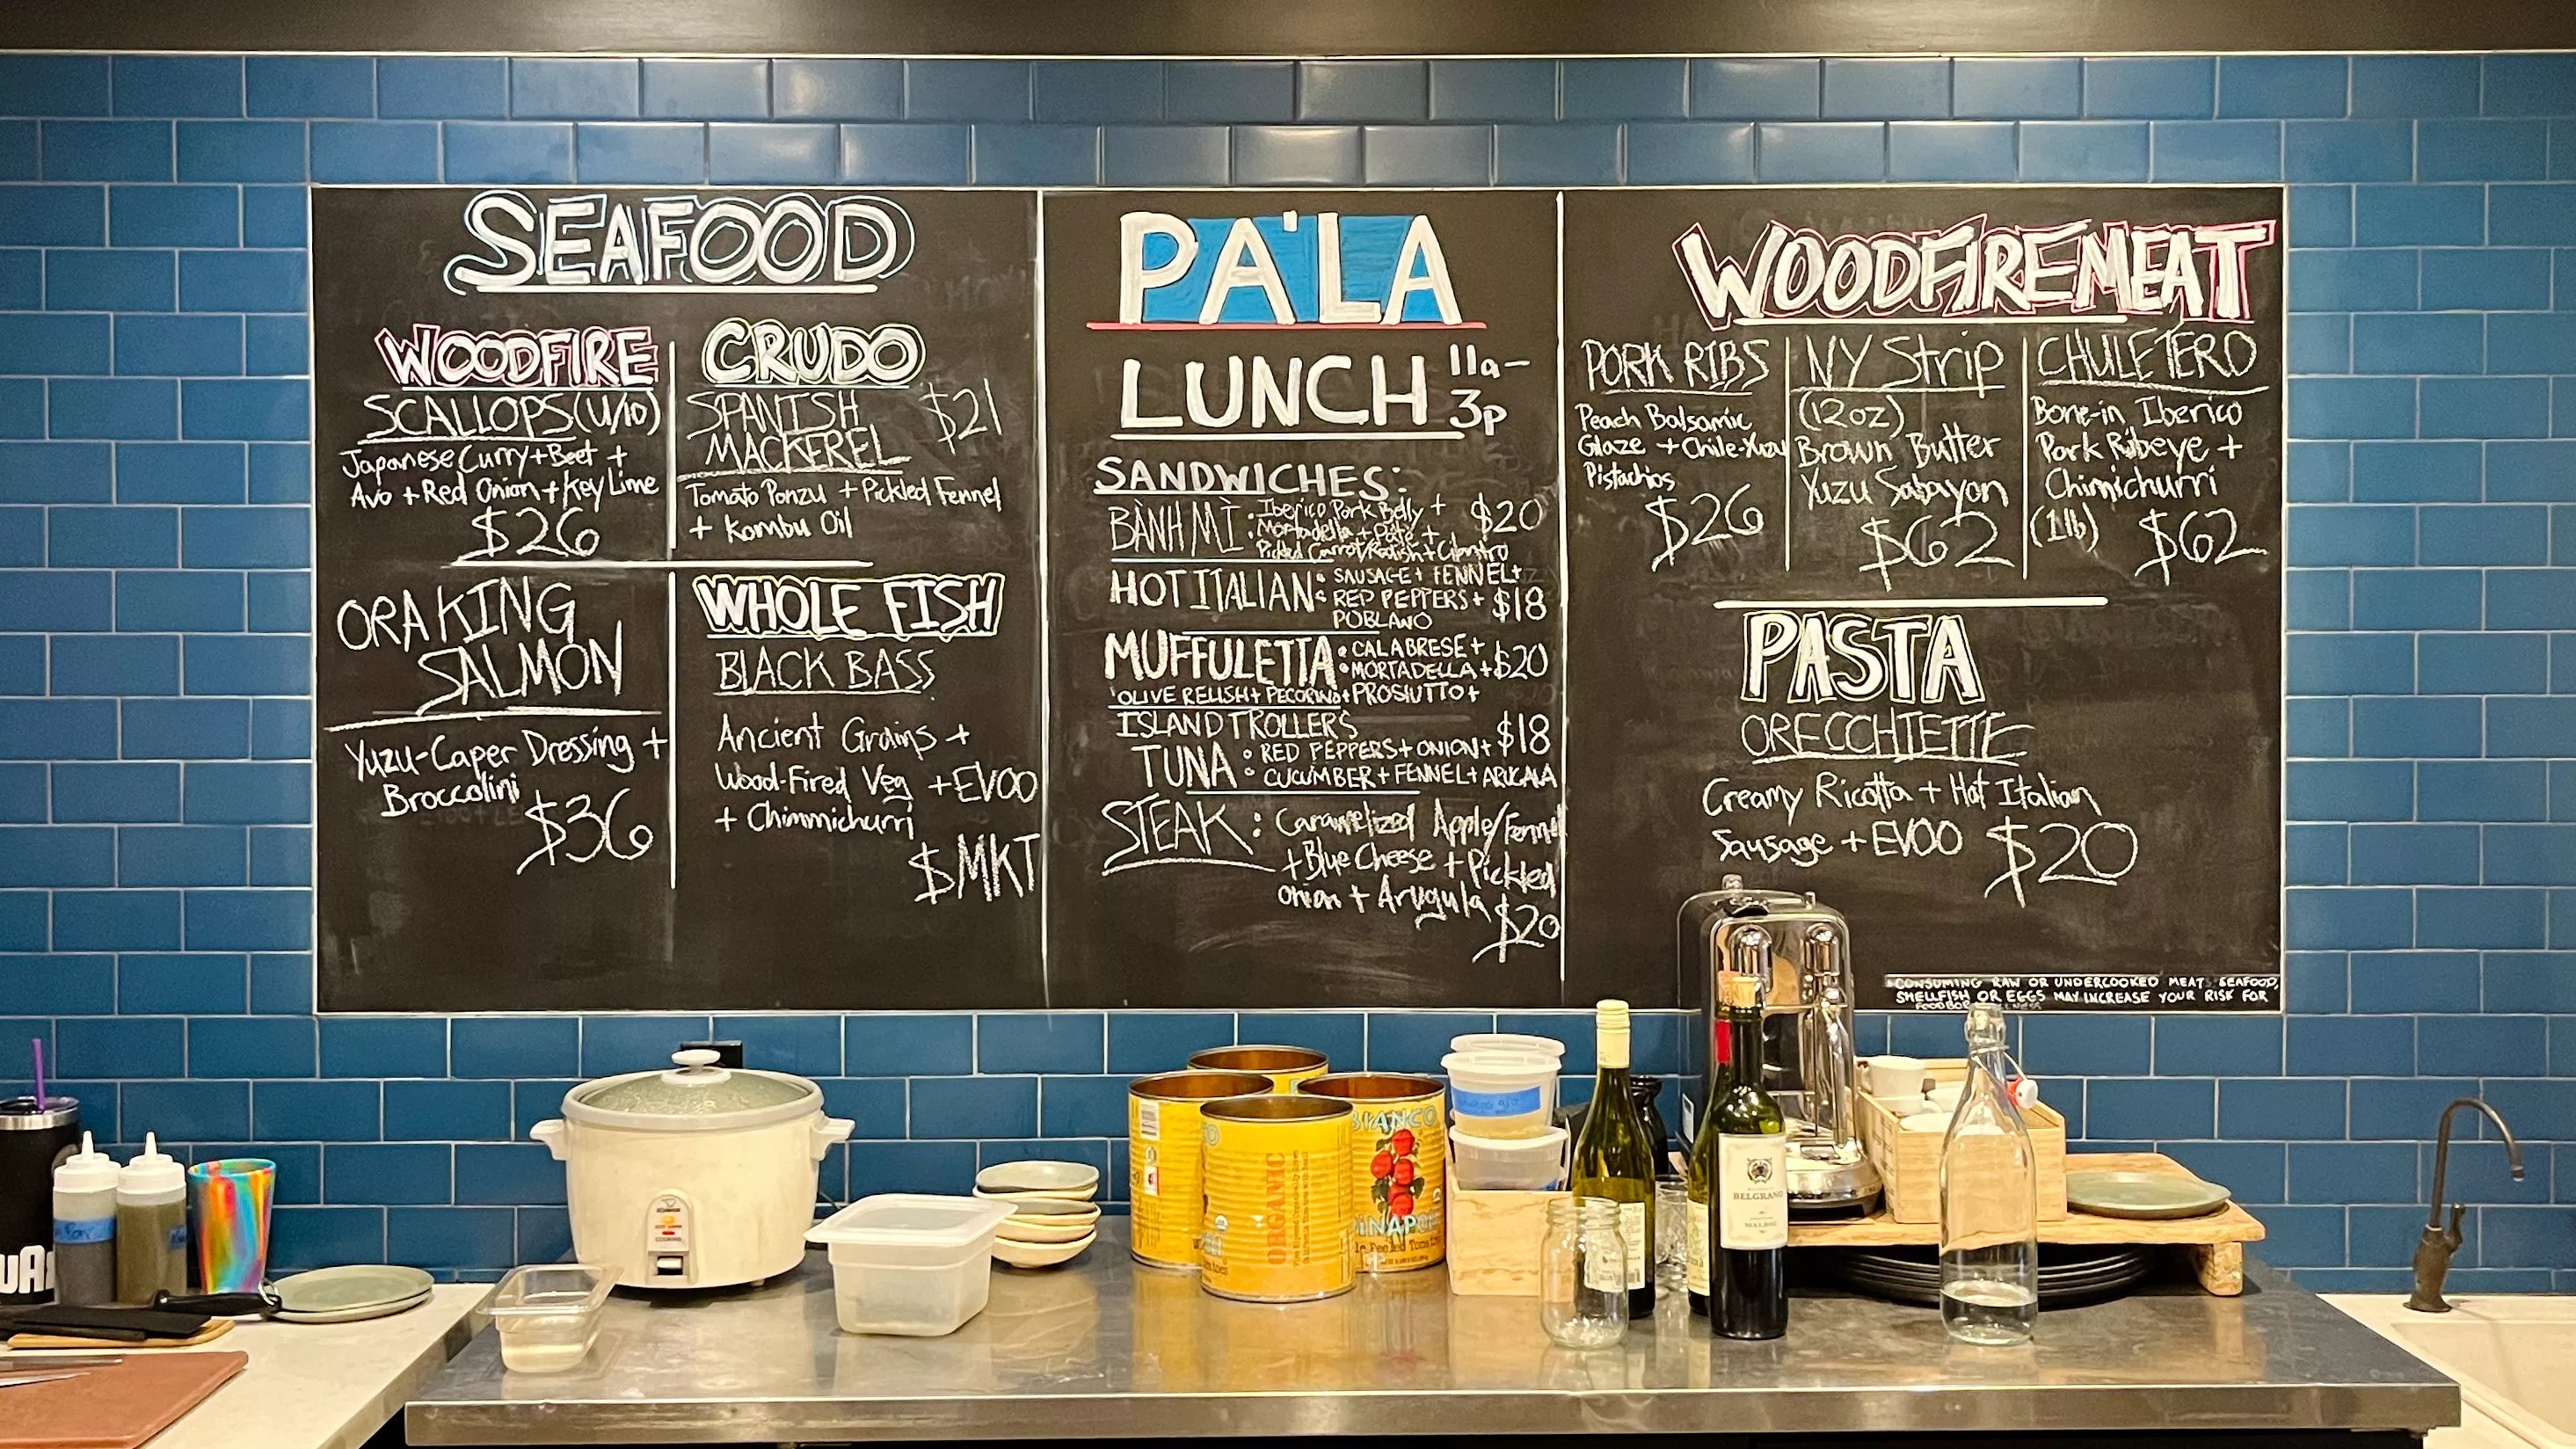 SEAFOOD
WOODFIRE
SCALLOPS (U/10)
Japanese Curry + Beet +
Avo + Red Onion + Key Lime
$26
CRUDO
SPANISH
MACKEREL
$21
Tomato Ponzu + Pickled Fennel
+ Kombu Oil
ORA KING
SALMON
Yuzu-Caper Dressing +
Broccolini
$36
WHOLE FISH
BLACK BASS
Ancient Grains +
Wood-Fired Veg + EVOO
+ Chimmichurri
$MKT
PA'LA
LUNCH 11a-
3p
SANDWICHES:
BÀNH MÌ: Iberico Pork Belly + $20
Mortadella + Pate +
Pickled Carrot/Radish + Cilantro
HOT ITALIAN: SAUSAGE + FENNEL +
RED PEPPERS + $18
POBLANO
MUFFULETTA: CALABRESE +
MORTADELLA + $20
OLIVE RELISH + PECORINO + PROSIUTTO +
ISLAND TROLLERS
TUNA: RED PEPPERS + ONION + $18
CUCUMBER + FENNEL + ARUGALA
STEAK: Caramelized Apple/Fennel
+ Blue Cheese + Pickled
Onion + Arugula
$20
WOODFIRE MEAT
PORK RIBS
Peach Balsamic
Glaze + Chile-Yuzu
Pistachios
$26
NY Strip
(12oz)
Brown Butter
Yuzu Sabayon
$62
CHULETERO
Bone-in Iberico
Pork Ribeye +
Chimichurri
(1lb) $62
PASTA
ORECCHIETTE
Creamy Ricotta + Hot Italian
Sausage + EVOO $20
CONSUMING RAW OR UNDERCOOKED MEATS SEAFOOD,
SHELLFISH OR EGGS MAY INCREASE YOUR RISK FOR
ORGANIC
BIANCO
DINAPO
BELGRANO
MALBEC